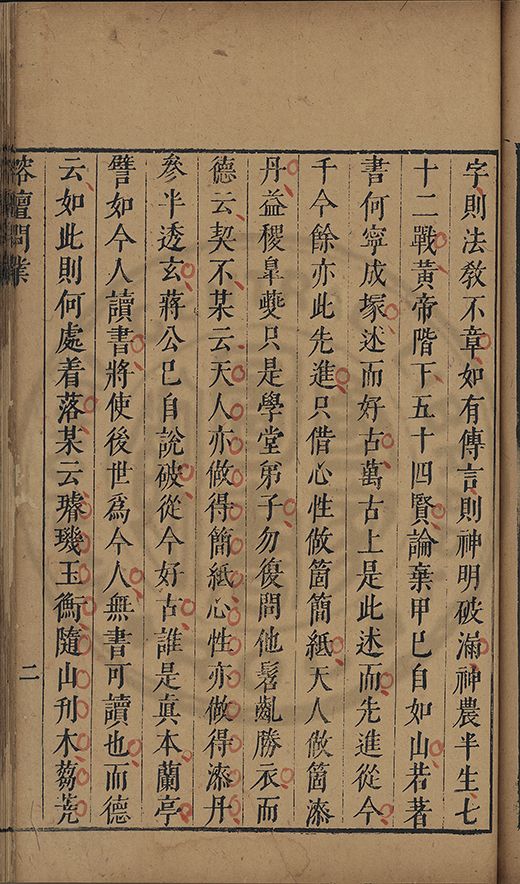 字則法教不章如有傳言則神明破漏神農半生七
十二戰黃帝階下五十四賢論棄甲巳自如山若著
書何寧成塚述而好古萬古上是此述而先進從今
千今餘亦此先進只借心性做箇簡紙天人做箇漆
丹益稷臯夔只是學堂弟子勿復問他髫齔勝衣而
德云契不某云天人亦做得簡紙心性亦做得漆丹
參半透玄蔣公巳自說破從今好古誰是真本蘭亭
譬如今人讀書將使後世爲今人無書可讀也而德
云如此則何處着落某云璿璣玉衡隨山刋木蒭蕘
榕壇問業
二